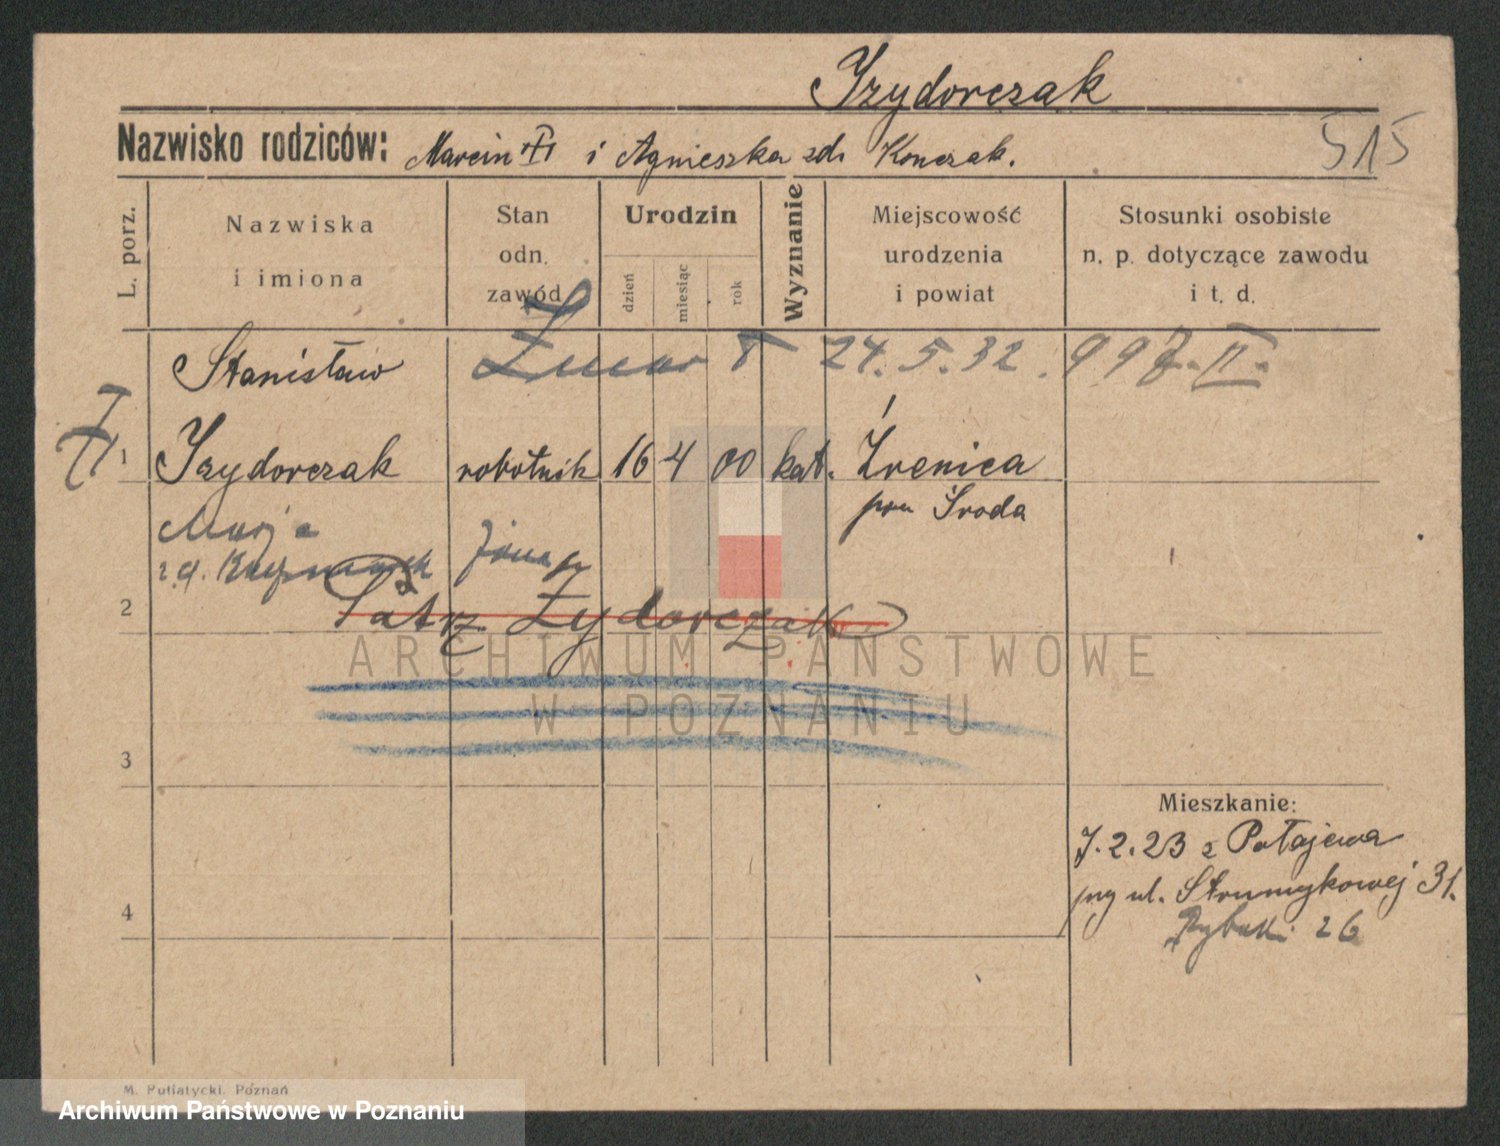 Izydorczak
Nazwisko rodziców: Marcin i Agnieszka zd. Konczak.
515
L. porz.
Nazwiska
i imiona
Stan
odn.
zawód
Urodzin
dzień
miesiąc
rok
Wyznanie
Miejscowość
urodzenia
i powiat
Stosunki osobiste
n. p. dotyczące zawodu
i t. d.
Stanisław Zmarł 24.5.32. 997.II.
1 Izydorczak robotnik 16 4 00 kat. Źrenica
pow Środa
Marja żona
zd.
2 Patrz Zydorczak
3
4
Mieszkanie:
7.2.23 z Połajewa
przy ul. Strumykowej 31.
Rybaki 26
ARCHIWUM PAŃSTWOWE
W POZNANIU
M. Putiatycki, Poznań
Archiwum Państwowe w Poznaniu